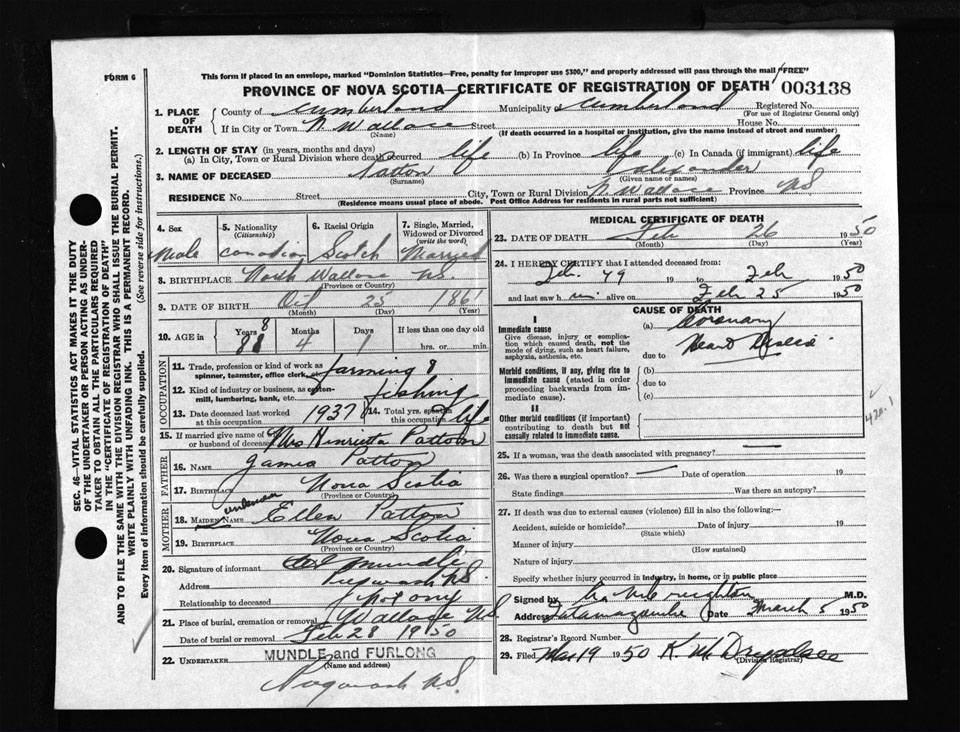 FORM 6
This form if placed in an envelope, marked "Dominion Statistics—Free, penalty for improper use $300," and properly addressed will pass through the mail "FREE"
PROVINCE OF NOVA SCOTIA—CERTIFICATE OF REGISTRATION OF DEATH 003138
1. PLACE OF DEATH
County of Cumberland Municipality of Cumberland Registered No.
(For use of Registrar General only)
If in City or Town N. Wallace Street House No.
(Name) (If death occurred in a hospital or institution, give the name instead of street and number)
2. LENGTH OF STAY (in years, months and days)
(a) In City, Town or Rural Division where death occurred life (b) In Province life (c) In Canada (if immigrant) life
3. NAME OF DECEASED Patton Alexander
(Surname) (Given name or names)
RESIDENCE No. Street City, Town or Rural Division N. Wallace Province NS
(Residence means usual place of abode. Post Office Address for residents in rural parts not sufficient)
4. Sex Male
5. Nationality (Citizenship) Canadian
6. Racial Origin Scotch
7. Single, Married, Widowed or Divorced (write the word) Married
8. BIRTHPLACE North Wallace N.S.
(Province or Country)
9. DATE OF BIRTH Oct 25 1861
(Month) (Day) (Year)
10. AGE in Years 88 Months 4 Days 1 If less than one day old hrs. or min.
OCCUPATION
11. Trade, profession or kind of work as spinner, teamster, office clerk, etc. farming &
12. Kind of industry or business, as cotton-mill, lumbering, bank, etc. fishing
13. Date deceased last worked at this occupation 1937 14. Total yrs. spent in life
15. If married give name of husband or wife of deceased Mrs Henrietta Patton
FATHER
16. NAME James Patton
17. BIRTHPLACE Nova Scotia
(Province or Country)
MOTHER
unknown
18. MAIDEN NAME Ellen Patton
19. BIRTHPLACE Nova Scotia
(Province or Country)
20. Signature of informant Mundle
Address Pugwash N.S.
Relationship to deceased
21. Place of burial, cremation or removal Wallace NS
Date of burial or removal Feb 28 1950
22. UNDERTAKER MUNDLE and FURLONG
(Name and address)
Pugwash N.S.
MEDICAL CERTIFICATE OF DEATH
23. DATE OF DEATH Feb 26 1950
(Month) (Day) (Year)
24. I HEREBY CERTIFY that I attended deceased from:
Feb. 49 19 to Feb 1950
and last saw him alive on Feb 25 1950
CAUSE OF DEATH
I
Immediate cause (a) Coronary
Give disease, injury or complication which caused death, not the mode of dying, such as heart failure, asphyxia, asthenia, etc.
Heart Disease
due to
Morbid conditions, if any, giving rise to immediate cause (stated in order proceeding backwards from immediate cause).
(b)
due to
(c)
II
Other morbid conditions (if important) contributing to death but not causally related to immediate cause.
420.1
25. If a woman, was the death associated with pregnancy?
26. Was there a surgical operation? Date of operation 19
State findings Was there an autopsy?
27. If death was due to external causes (violence) fill in also the following:—
Accident, suicide or homicide? Date of injury 19
(State which)
Manner of injury
(How sustained)
Nature of injury
Specify whether injury occurred in industry, in home, or in public place
Signed by M.D.
Address Tatamagouche Date March 5 1950
28. Registrar's Record Number
29. Filed Mar 9 1950 K. M. Drysdale
(Division Registrar)
SEC. 46—VITAL STATISTICS ACT MAKES IT THE DUTY
OF THE UNDERTAKER OR PERSON ACTING AS UNDER-
TAKER TO OBTAIN ALL THE PARTICULARS REQUIRED
IN THE "CERTIFICATE OF REGISTRATION OF DEATH"
AND TO FILE THE SAME WITH THE DIVISION REGISTRAR WHO SHALL ISSUE THE BURIAL PERMIT.
WRITE PLAINLY WITH UNFADING INK. THIS IS A PERMANENT RECORD.
Every item of information should be carefully supplied. (See reverse side for instructions.)